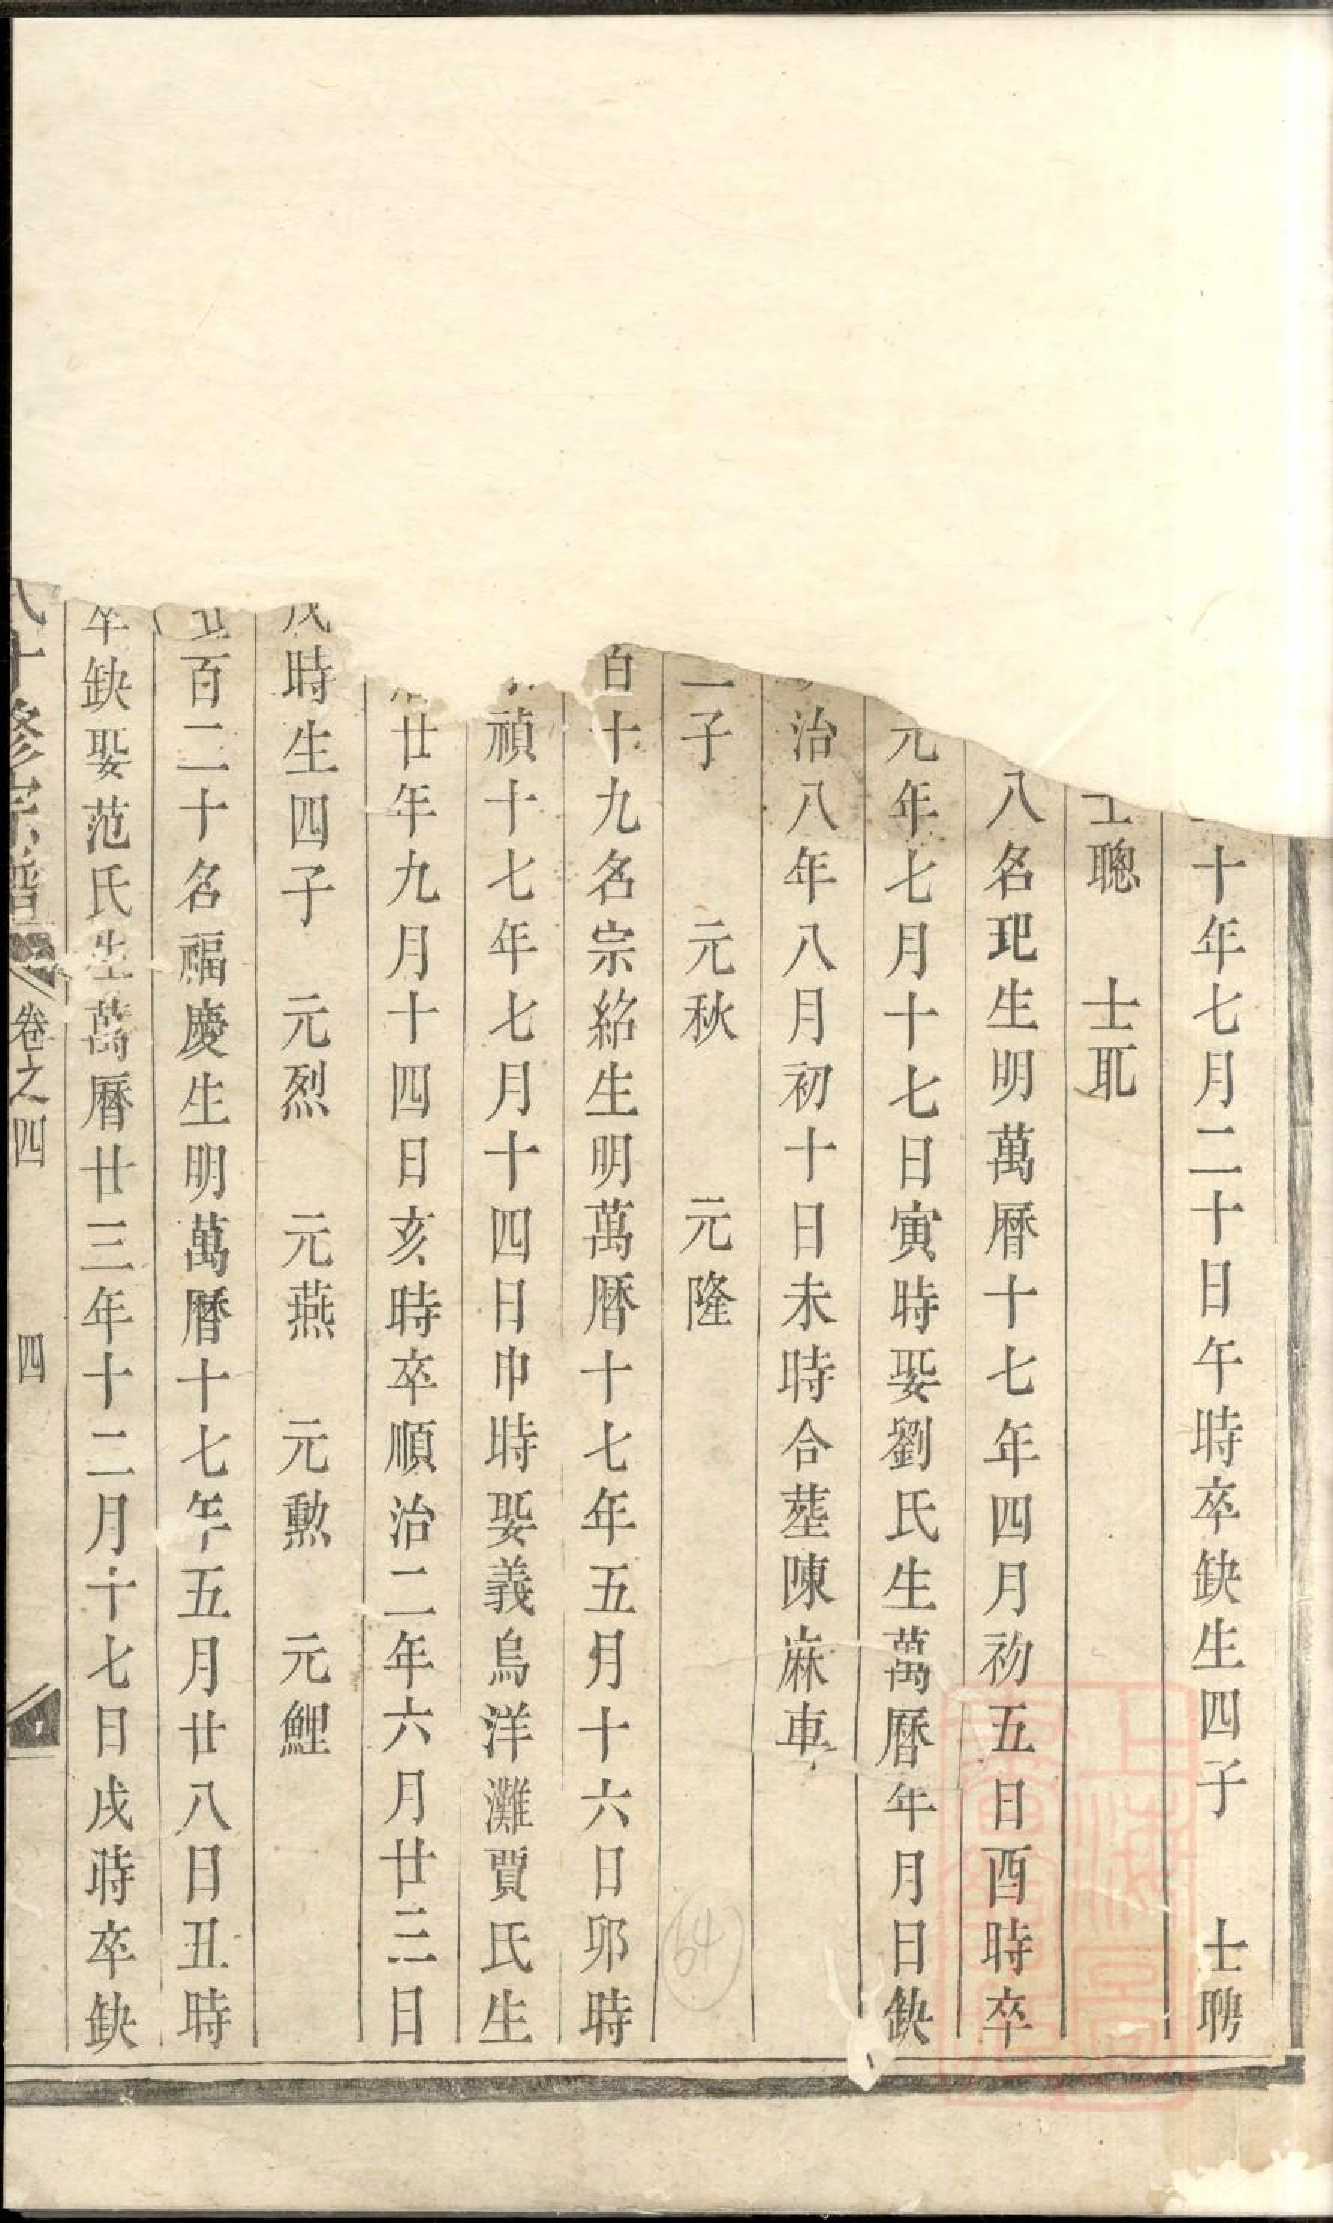 十年七月二十日午時卒缺生四子　士聘
士聰　士耴
八名玘生明萬曆十七年四月初五日酉時卒
元年七月十七日寅時娶劉氏生萬曆年月日缺
治八年八月初十日未時合塟陳麻車
二子　元秋　元隆
百十九名宗紹生明萬曆十七年五月十六日卯時
禎十七年七月十四日巾時娶義烏洋灘賈氏生
廿年九月十四日亥時卒順治二年六月廿三日
戌時生四子　元烈　元燕　元勲　元鯉
百二十名福慶生明萬曆十七年五月廿八日丑時
卒缺娶范氏生萬曆廿三年十二月十七日戌時卒缺
十修宗譜　卷之四　四
64
上海圖書館藏